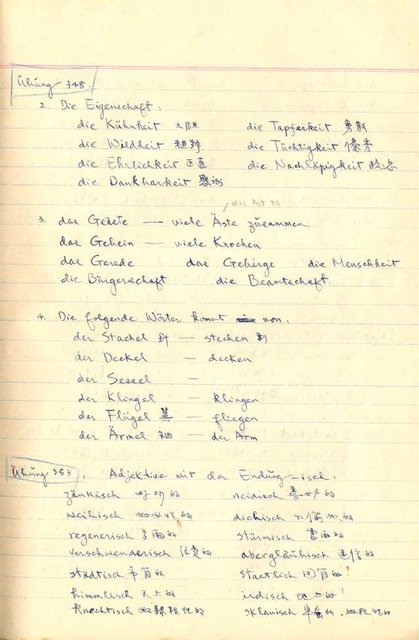 Übung 348
2. Die Eigenschaft.
die Kühnheit 大胆 die Tapferkeit 勇敢
die Wildheit 粗野 die Tüchtigkeit 優秀
die Ehrlichkeit 正直 die Nachläpigkeit
die Dankbarkeit 感謝
der Ast
3. das Geäste — viele Äste zusammen
das Gebein — viele Knochen
das Gerede das Gebirge die Menschheit
die Bürgerschaft die Beamtschaft.
4. Die folgende Wörter kommt von.
der Stachel 針 — stechen 刺
der Deckel — decken
der Sessel —
der Klingel — klingen
der Flügel 翼 — fliegen
der Ärmel 袖 — der Arm
Übung 353. Adjektive mit der Endung -isch.
zänkisch neidisch
weibisch diebisch
regnerisch 多雨的 stürmisch
verschwenderisch 浪費的 abergläubisch 迷信的
städtisch 市有的 staatlich 国有的
himmlisch 天上的 irdisch 地上的
knechtisch sklavisch